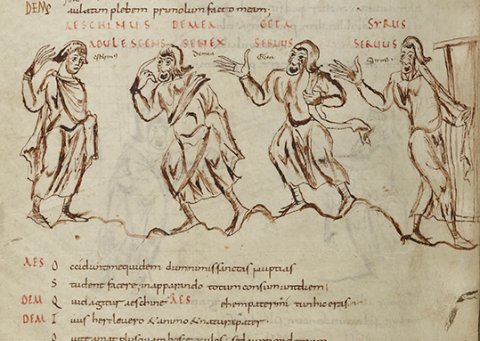 DEMS aulatim plebem primulum facio meam
AESCHINUS DEMEA GETA SYRUS
ADULESCENS SENEX SERVUS SERVUS
eschinus Demea Geta Syrus
AES O ccidunt mequidem dumnimis sanctas nuptias
S tudent facere inapparando totum consumunt diem
DEM Q uid agitur aeschine AES ehem pater mi tu hic eras
DEM T uus hercle vero & animo & natura pater